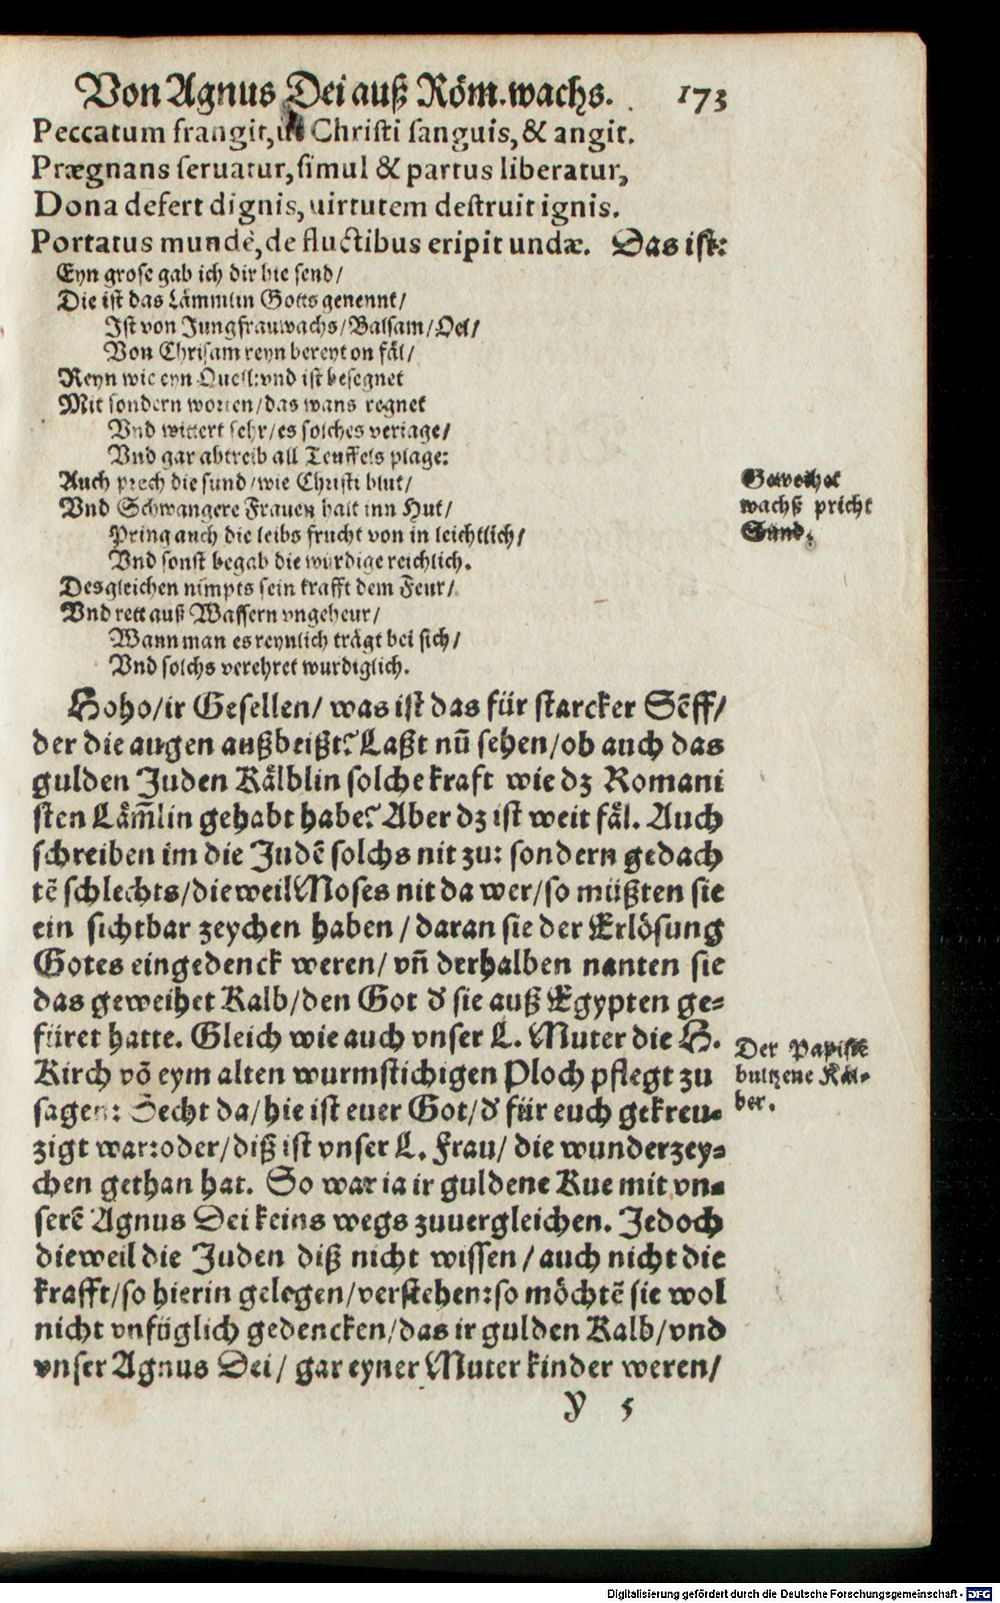 Von Agnus Dei auß Röm. wachs. 173
Peccatum frangit, Christi sanguis, & angit.
Prægnans seruatur, simul & partus liberatur,
Dona defert dignis, uirtutem destruit ignis.
Portatus mundè, de fluctibus eripit undæ. Das ist:
Eyn grose gab ich dir hie send/
Die ist das Lämmlin Gotts genennt/
Ist von Jungfrauwachs/Balsam/Oel/
Von Chrisam reyn bereyt on fäl/
Reyn wie eyn Quell: vnd ist besegnet
Mit sondern worten/das wans regnet
Vnd wittert sehr/es solches veriage/
Vnd gar abtreib all Teuffels plage:
Auch prech die sund/wie Christi blut/
Vnd Schwangere Frauen halt inn Hut/
Pring auch die leibs frucht von in leichtlich/
Vnd sonst begab die wurdige reichlich.
Desgleichen nimpts sein krafft dem Feur/
Vnd rett auß Wassern vngeheur/
Wann man es reynlich trägt bei sich/
Vnd solchs verehret wurdiglich.
Geweihet
wachß pricht
Sünd.
Hoho/ir Gesellen/ was ist das für starcker Sēff/
der die augen außbeißt? Laßt nū sehen/ob auch das
gulden Juden Kälblin solche kraft wie dz Romani
sten Läm̄lin gehabt habe? Aber dz ist weit fäl. Auch
schreiben im die Judē solchs nit zu: sondern gedach
tē schlechts/dieweil Moses nit da wer/so müßten sie
ein sichtbar zeychen haben/daran sie der Erlösung
Gotes eingedenck weren/ vn̄ derhalben nanten sie
das geweihet Kalb/den Got d' sie auß Egypten ge-
füret hatte. Gleich wie auch vnser L. Muter die H.
Kirch vō eym alten wurmstichigen Ploch pflegt zu
sagen: Secht da/hie ist euer Got/d' für euch gekreu-
zigt war: oder/diß ist vnser L. Frau/ die wunderzey-
chen gethan hat. So war ia ir guldene Kue mit vn-
serē Agnus Dei keins wegs zuuergleichen. Jedoch
dieweil die Juden diß nicht wissen/auch nicht die
krafft/so hierin gelegen/verstehen: so möchtē sie wol
nicht vnfüglich gedencken/das ir gulden Kalb/vnd
vnser Agnus Dei/ gar eyner Muter kinder weren/
Der Papisten
hultzene Käl-
ber.
Y 5
Digitalisierung gefördert durch die Deutsche Forschungsgemeinschaft - DFG